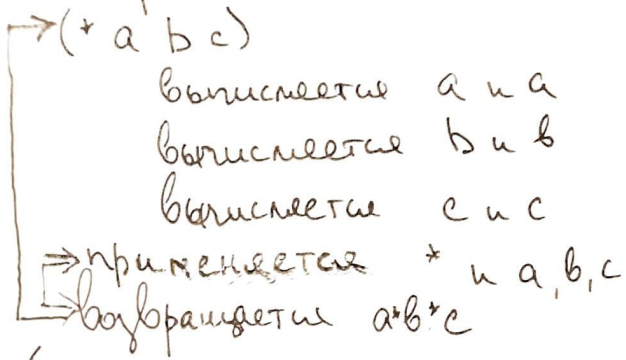 (* a b c)
вычисляется a и a
вычисляется b и в
вычисляется c и c
применяется * и a, в, c
возвращается a*в*c